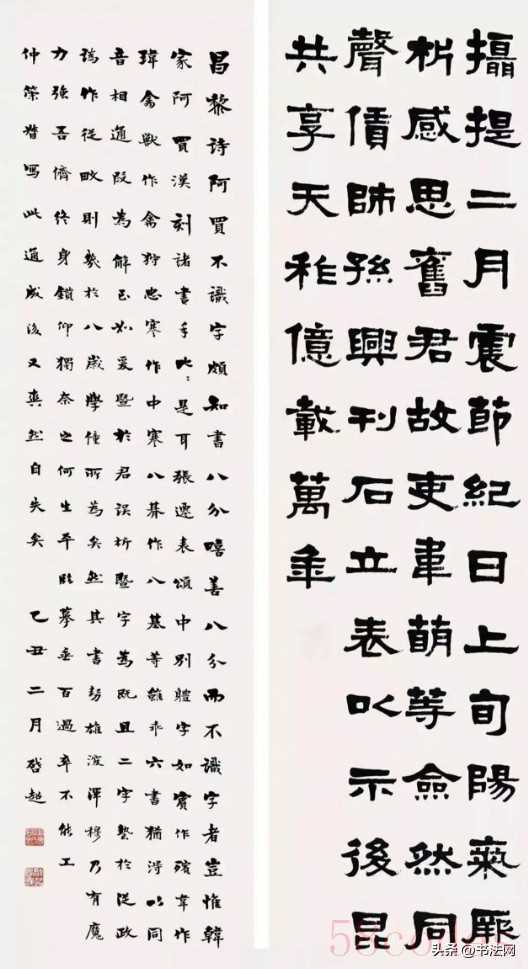 攝提二月震節紀日上旬陽氣厥
析感思舊君故吏韋萌等僉然同
聲賃師孫興刊石立表以示後昆
共享天祚億載萬年
昌黎詩阿買不識字頗知書八分嘻善八分而不識字者豈惟韓
家阿買漢刻諸書手比〻是耳張遷表頌中別體字如賓作殯韋作
瑋禽獸作禽狩忠寒作中寒八綦作八基等雖乖六書猶得以同
音相通叚為解已如爰暨於君誤析暨字為既且二字蓺於從政
譌作從畋則幾於八歲學僮所為矣然其書勢雄渾穆乃有魔
力強吾儕終身鑽仰獨奈之何生平臨摹垂百過卒不能工
仲策督寫此通成後又爽然自失矣 乙丑二月啓超
头条 @书法网